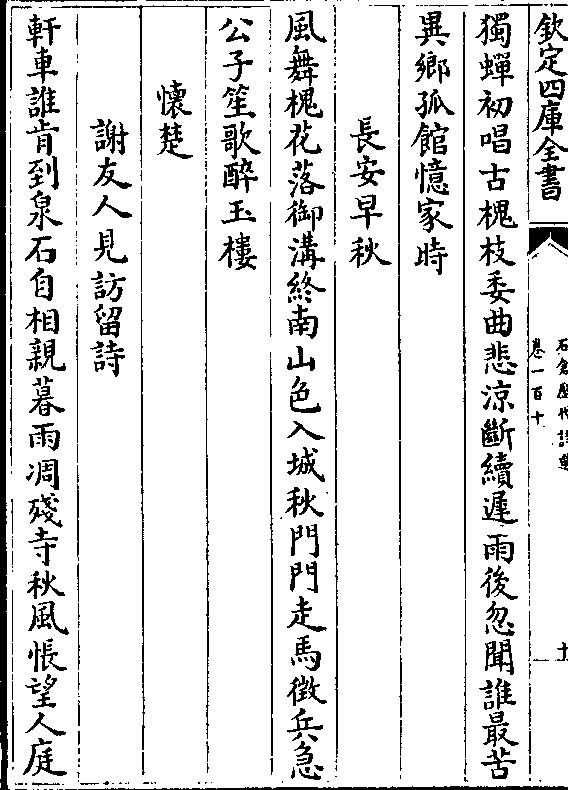 欽定四庫全書
石倉歷代詩選
卷一百十
十
獨蟬初唱古槐枝委曲悲涼斷續遲雨後忽聞誰最苦
異鄉孤館憶家時
長安早秋
風舞槐花落御溝終南山色入城秋門門走馬徵兵急
公子笙歌醉玉樓
懷楚
謝友人見訪留詩
軒車誰肯到泉石自相親暮雨凋殘寺秋風悵望人庭